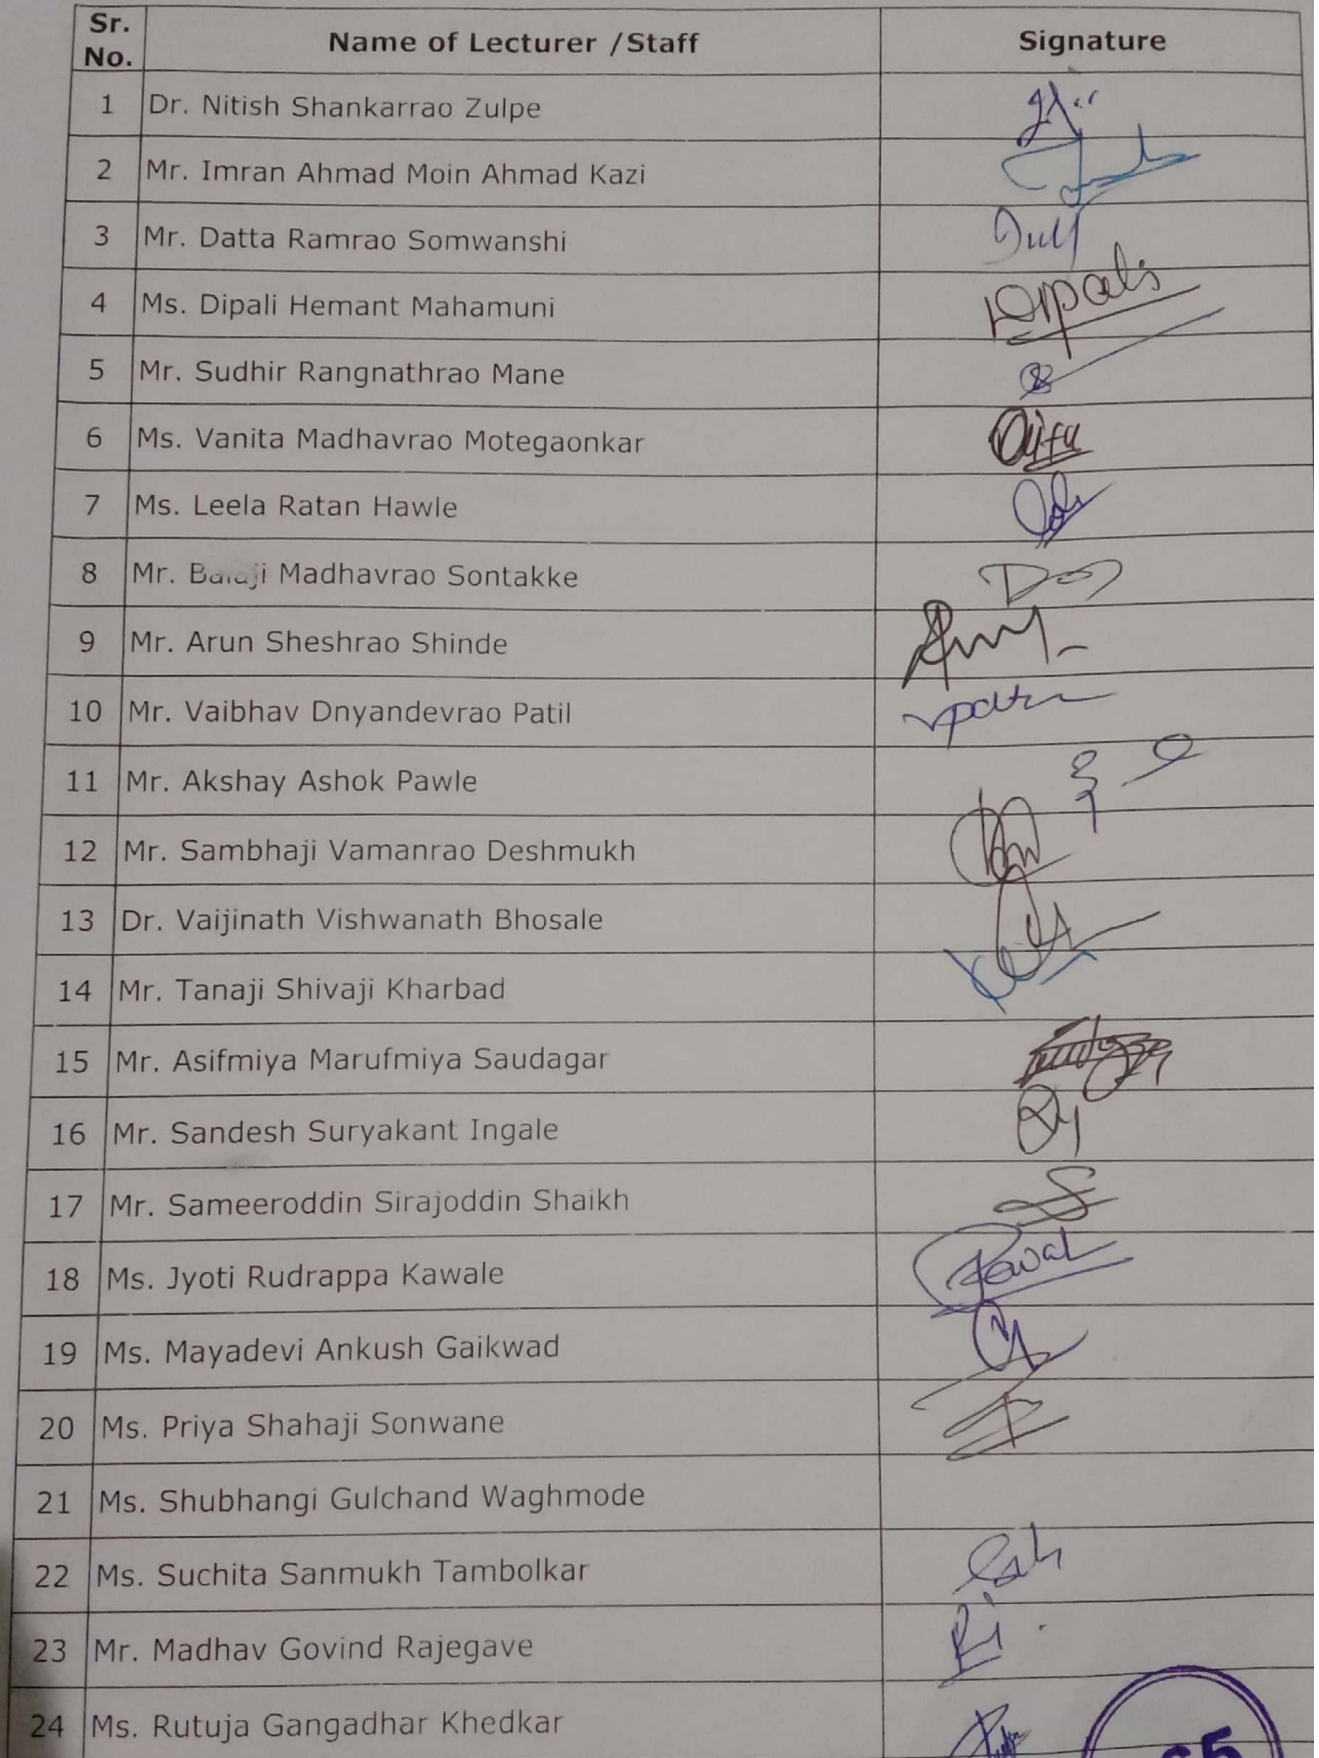 Sr. No. Name of Lecturer /Staff Signature
1 Dr. Nitish Shankarrao Zulpe
2 Mr. Imran Ahmad Moin Ahmad Kazi
3 Mr. Datta Ramrao Somwanshi
4 Ms. Dipali Hemant Mahamuni Dipali
5 Mr. Sudhir Rangnathrao Mane
6 Ms. Vanita Madhavrao Motegaonkar
7 Ms. Leela Ratan Hawle
8 Mr. Balaji Madhavrao Sontakke
9 Mr. Arun Sheshrao Shinde
10 Mr. Vaibhav Dnyandevrao Patil
11 Mr. Akshay Ashok Pawle
12 Mr. Sambhaji Vamanrao Deshmukh
13 Dr. Vaijinath Vishwanath Bhosale
14 Mr. Tanaji Shivaji Kharbad
15 Mr. Asifmiya Marufmiya Saudagar
16 Mr. Sandesh Suryakant Ingale
17 Mr. Sameeroddin Sirajoddin Shaikh
18 Ms. Jyoti Rudrappa Kawale
19 Ms. Mayadevi Ankush Gaikwad
20 Ms. Priya Shahaji Sonwane
21 Ms. Shubhangi Gulchand Waghmode
22 Ms. Suchita Sanmukh Tambolkar
23 Mr. Madhav Govind Rajegave
24 Ms. Rutuja Gangadhar Khedkar